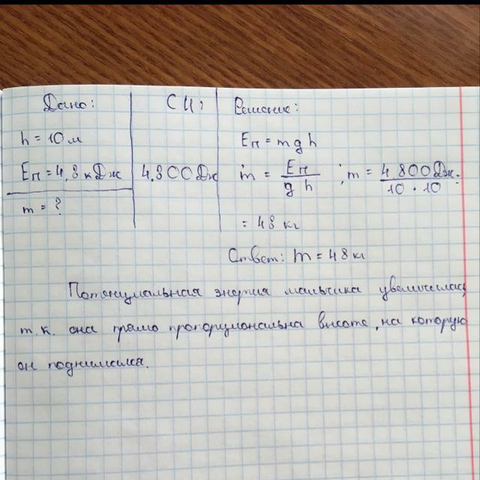 Дано: СИ: Решение:
h = 10 м
Eп = mgh
Eп = 4,8 кДж 4.800 Дж m = Eп / g h ; m = 4 800 Дж / 10 · 10 =
m = ?
= 48 кг
Ответ: m = 48 кг
Потенциальная энергия мальчика увеличилась,
т.к. она прямо пропорциональна высоте, на которую
он поднимался.